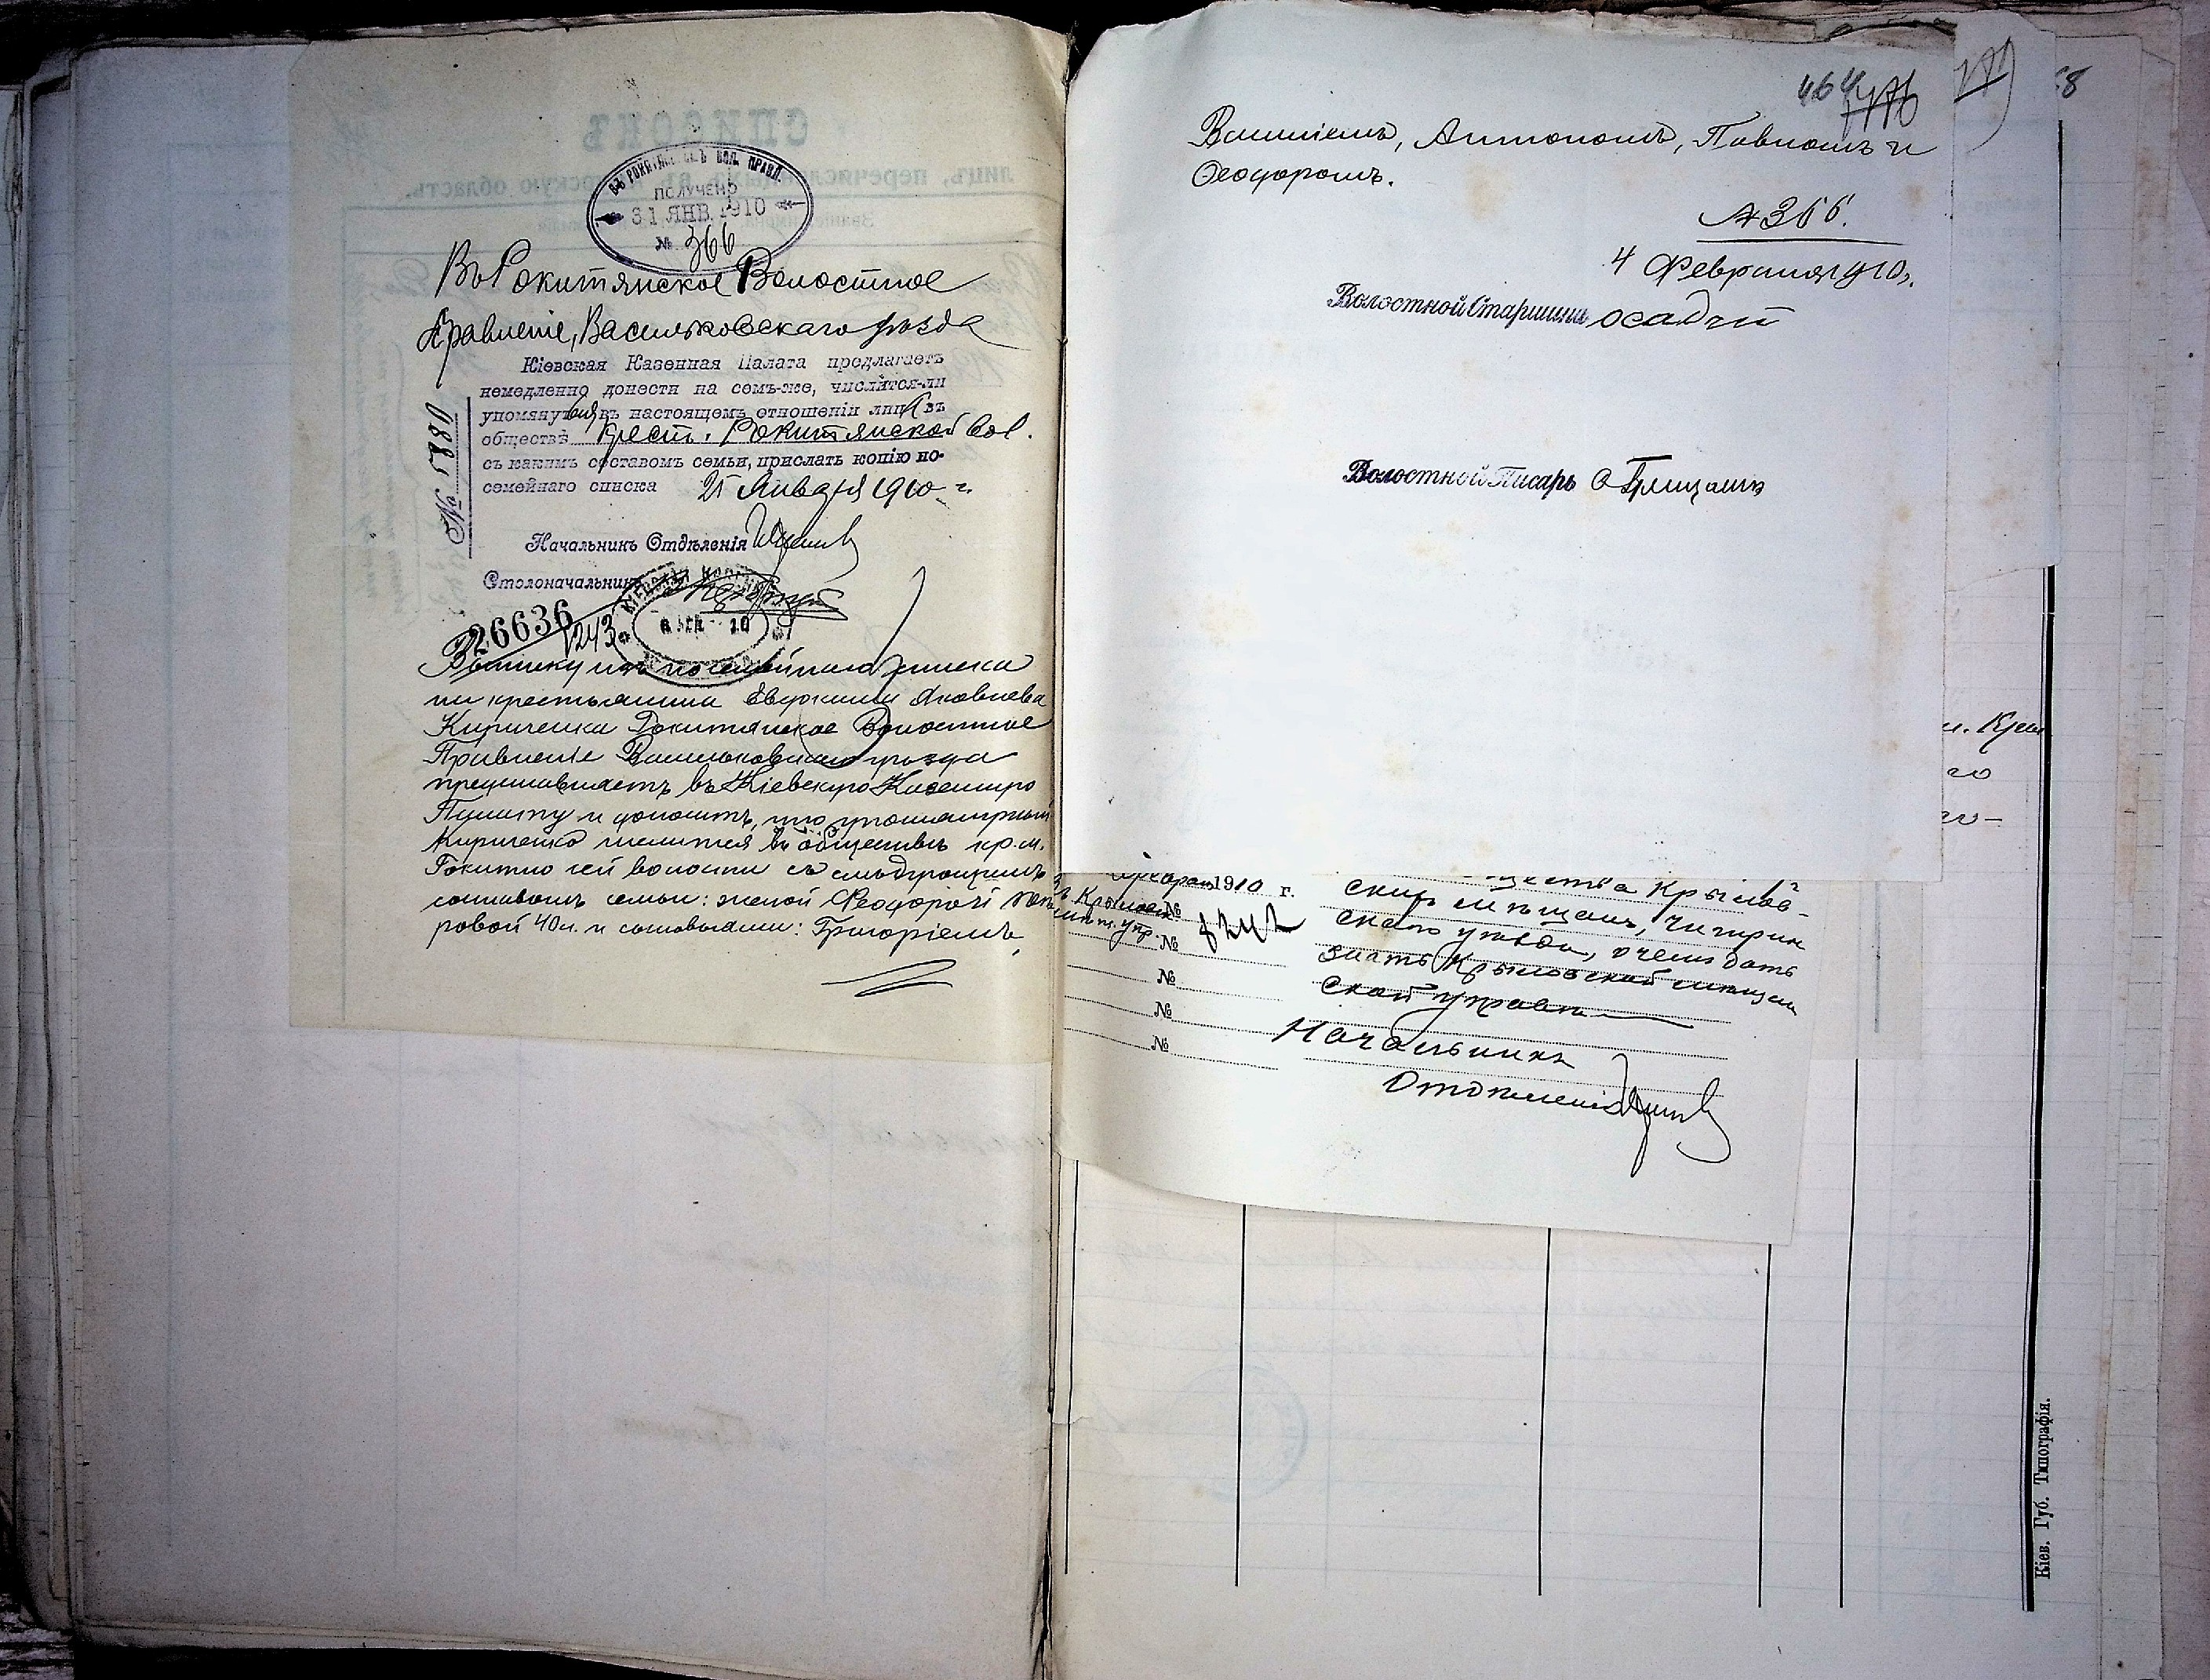 ПОЛУЧЕНО
31 ЯНВ. 1910
№ 366
Въ Рокитянское Волостное
Правленіе, Васильковскаго уѣзда
Кіевская Казенная Палата предлагаетъ
немедленно донести на семъ-же, числится-ли
упомянутый въ настоящемъ отношеніи лица въ
обществѣ Крест. Рокитянской вол.
съ какимъ составомъ семьи, прислать копію по-
семейнаго списка 25 Января 1910 г.
№ 5880
Начальникъ Отдѣленія
Столоначальникъ
26636
1243
Выписку изъ посемейнаго списка
на крестьянина Евдокима Яковлева
Кириченка Рокитянское Волостное
Правленіе Васильковскаго уѣзда
представляетъ въ Кіевскую Казенную
Палату и доноситъ, что упомянутый
Кириченко числится въ обществѣ кр. м.
Рокитно сей волости съ слѣдующимъ
составомъ семьи: женой Феодорой
ровой 40 л. и сыновьями: Григоріемъ,
464
Василіемъ, Антономъ, Павломъ и
Феодоромъ.
№ 366.
4 Февраля 1910 г.
Волостной Старшина Осадчій
Волостной Писарь
1910 г.
№
№ 1242
№
№
№
общества Крылов-
скихъ мѣщанъ, Чигирин
скаго уѣзда, о чемъ дать
знать Крыловской мѣщан
ской управѣ
Начальникъ
Отдѣленія
Кіев. Губ. Типографія.